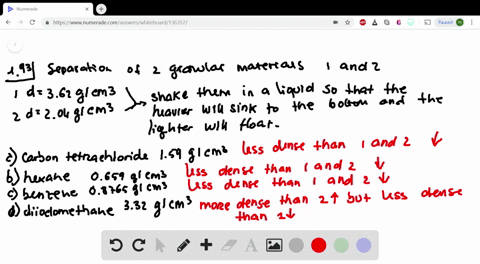 Numerade
https://www.numerade.com/answers/whiteboard/136357/
Paused
1.93 Separation of 2 granular materials 1 and 2
1 d=3.62 g/cm3
2 d=2.04 g/cm3
shake them in a liquid so that the
heavier will sink to the bottom and the
lighter will float.
a) carbon tetrachloride 1.59 g/cm3 less dense than 1 and 2 ↓
b) hexane 0.659 g/cm3 less dense than 1 and 2 ↓
c) benzene 0.8765 g/cm3 less dense than 1 and 2 ↓
d) diiodomethane 3.32 g/cm3 more dense than 2 ↑ but less dense
than 1 ↓